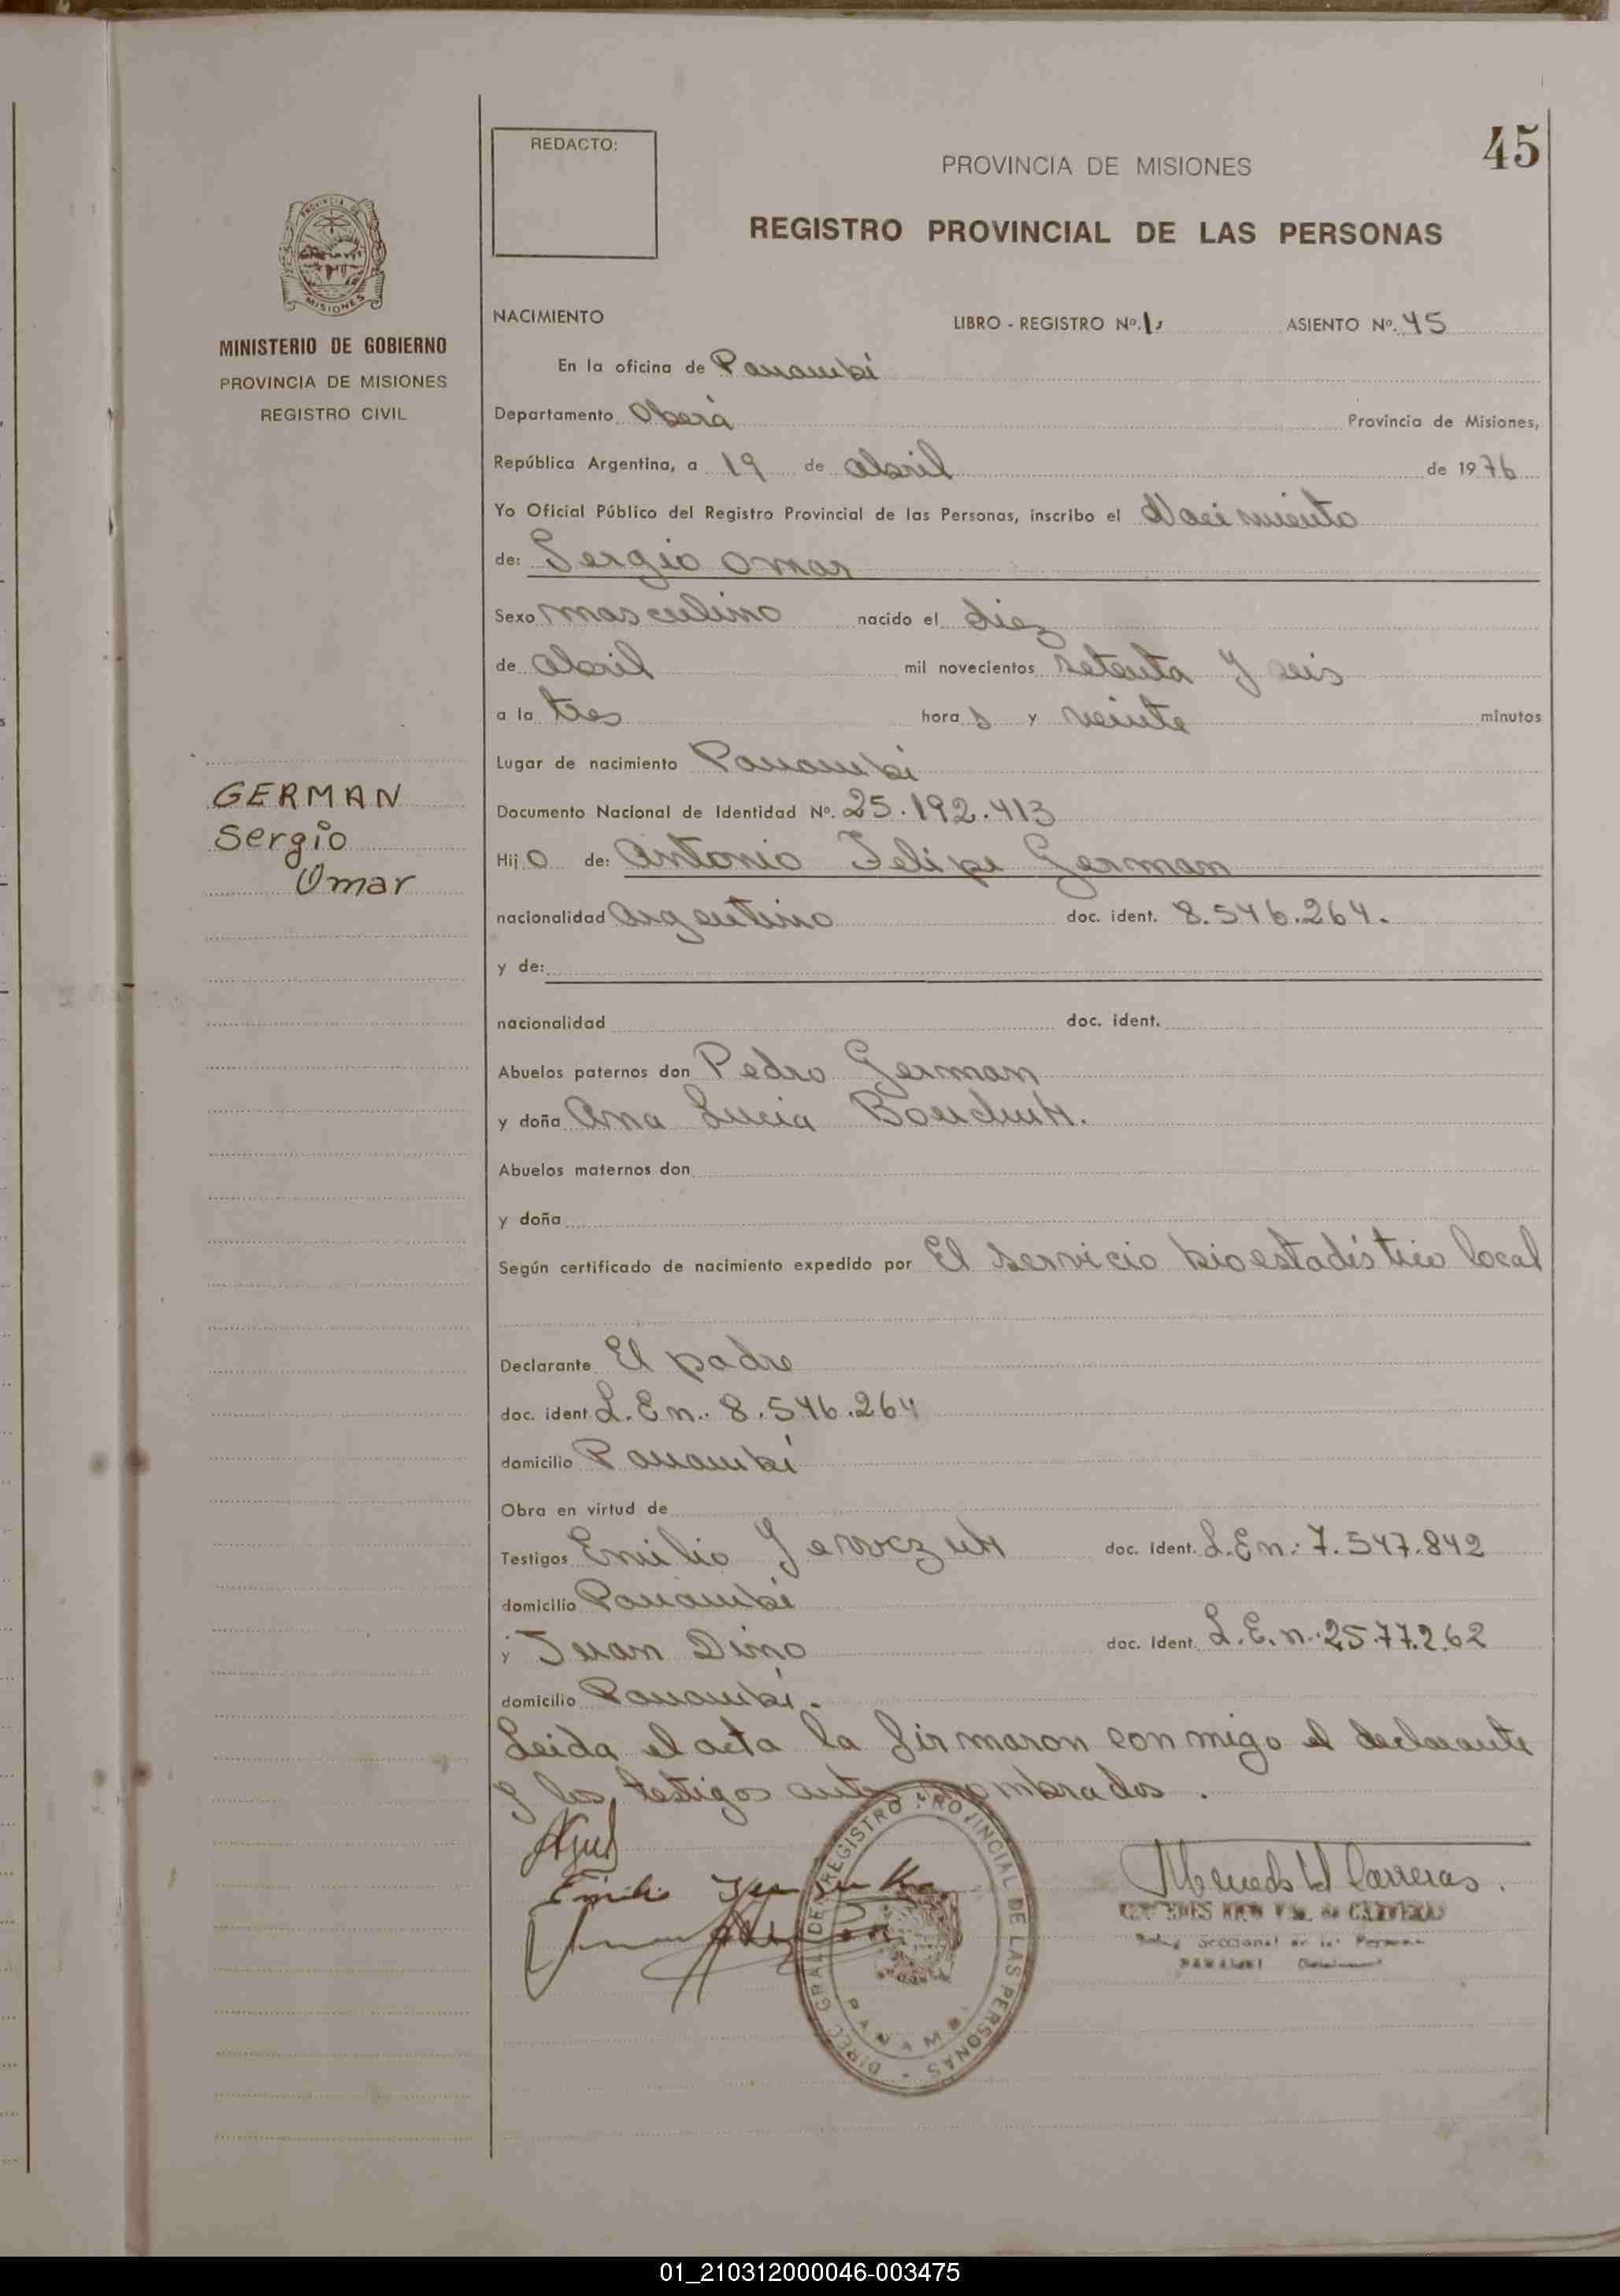 45
REDACTO:
PROVINCIA DE MISIONES
REGISTRO PROVINCIAL DE LAS PERSONAS
PROVINCIA DE
MISIONES
MINISTERIO DE GOBIERNO
PROVINCIA DE MISIONES
REGISTRO CIVIL
GERMAN
Sergio
Omar
NACIMIENTO LIBRO - REGISTRO Nº. 1. ASIENTO Nº. 45
En la oficina de Panambí
Departamento Oberá Provincia de Misiones,
República Argentina, a 19 de abril de 1976
Yo Oficial Público del Registro Provincial de las Personas, inscribo el Nacimiento
de: Sergio Omar
Sexo masculino nacido el diez
de abril mil novecientos setenta y seis
a la tres hora s y veinte minutos
Lugar de nacimiento Panambí
Documento Nacional de Identidad Nº. 25.192.413
Hij o de: Antonio Felipe German
nacionalidad Argentino doc. ident. 8.546.264.
y de:
nacionalidad doc. ident.
Abuelos paternos don Pedro German
y doña Ana Lucia
Abuelos maternos don
y doña
Según certificado de nacimiento expedido por El servicio bioestadístico local
Declarante El padre
doc. ident L.E n.. 8.546.264
domicilio Panambí
Obra en virtud de
Testigos Emilio doc. Ident. L.E n.: 7.547.842
domicilio Panambí
y Juan Dino doc. Ident. L.E. n.. 2577.262
domicilio Panambí.
Leida el acta la firmaron conmigo el declarante
y los testigos antes nombrados.
Emilio
Carreras.
DIREC. GRAL. DEL REGISTRO PROVINCIAL DE LAS PERSONAS
PANAMBI
01_210312000046-003475